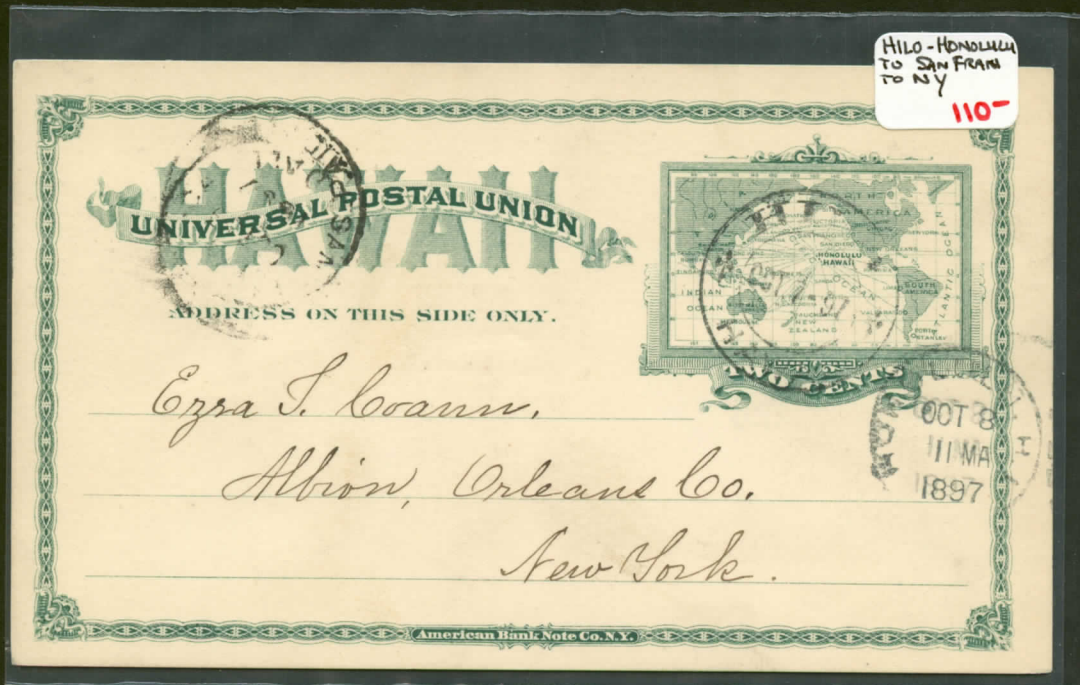 HILO - HONOLULU
TO SAN FRAN
TO NY
110-
HAWAII
UNIVERSAL POSTAL UNION
ADDRESS ON THIS SIDE ONLY.
HONOLULU
HAWAII
NEW
ZEALAND
INDIAN
OCEAN
OCEAN
SOUTH
AMERICA
ATLANTIC OCEAN
VALPARAISO
TWO CENTS
OCT 8
11 MA
1897
Ezra T. Coann.
Albion, Orleans Co.
New York.
American Bank Note Co. N.Y.